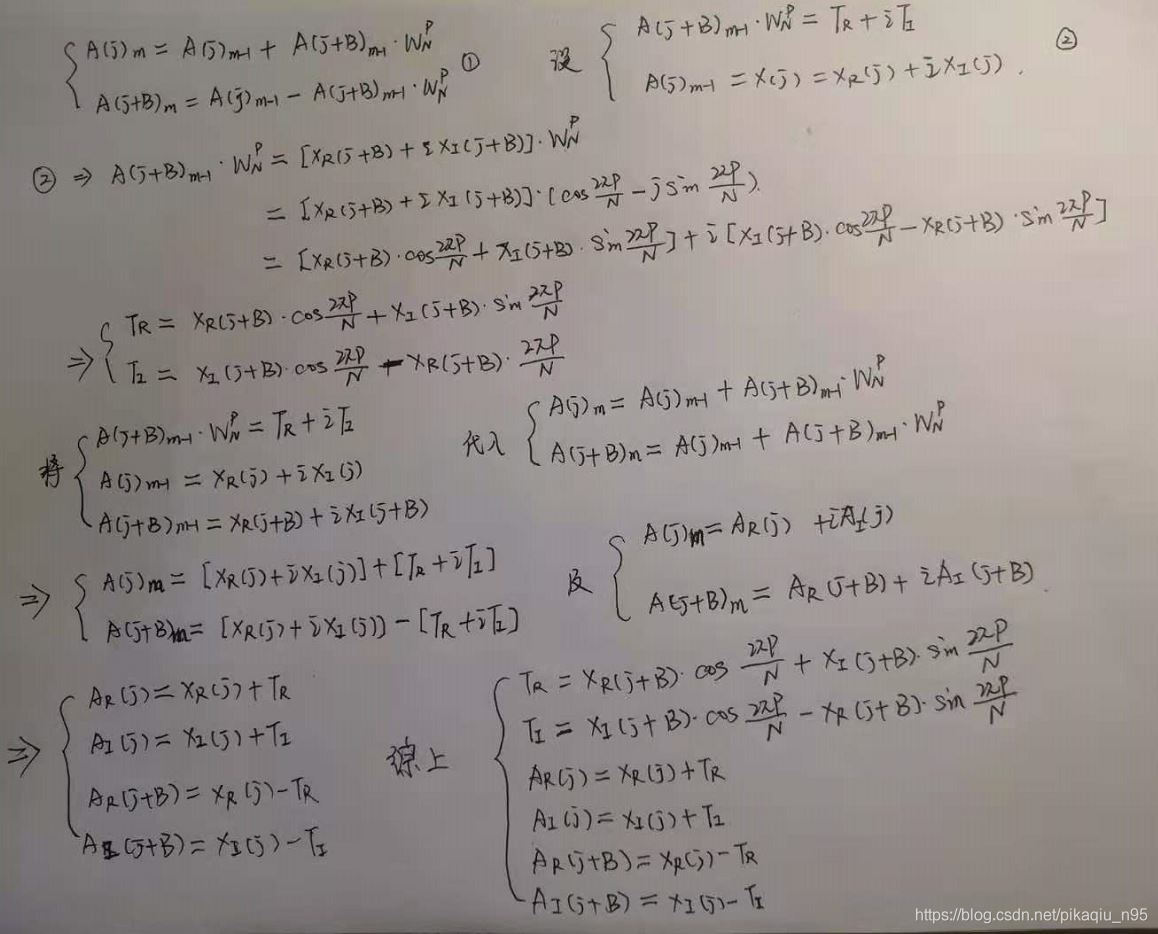 A(j)m = A(j)m-1 + A(j+B)m-1·W_N^P
A(j+B)m = A(j)m-1 − A(j+B)m-1·W_N^P ①
设 A(j+B)m-1·W_N^P = T_R + iT_I
A(j)m-1 = X(j) = X_R(j) + iX_I(j). ②
② ⇒ A(j+B)m-1·W_N^P = [X_R(j+B) + iX_I(j+B)]·W_N^P
= [X_R(j+B) + iX_I(j+B)]·(cos 2πP/N − j sin 2πP/N).
= [X_R(j+B)·cos 2πP/N + X_I(j+B)·sin 2πP/N] + i[X_I(j+B)·cos 2πP/N − X_R(j+B)·sin 2πP/N]
⇒ T_R = X_R(j+B)·cos 2πP/N + X_I(j+B)·sin 2πP/N
T_I = X_I(j+B)·cos 2πP/N − X_R(j+B)·2πP/N
将 A(j+B)m-1·W_N^P = T_R + iT_I
A(j)m-1 = X_R(j) + iX_I(j)
A(j+B)m-1 = X_R(j+B) + iX_I(j+B)
代入 A(j)m = A(j)m-1 + A(j+B)m-1·W_N^P
A(j+B)m = A(j)m-1 + A(j+B)m-1·W_N^P
⇒ A(j)m = [X_R(j) + iX_I(j)] + [T_R + iT_I]
A(j+B)m = [X_R(j) + iX_I(j)] − [T_R + iT_I]
及 A(j)m = A_R(j) + iA_I(j)
A(j+B)m = A_R(j+B) + iA_I(j+B)
⇒ A_R(j) = X_R(j) + T_R
A_I(j) = X_I(j) + T_I
A_R(j+B) = X_R(j) − T_R
A_I(j+B) = X_I(j) − T_I
综上 T_R = X_R(j+B)·cos 2πP/N + X_I(j+B)·sin 2πP/N
T_I = X_I(j+B)·cos 2πP/N − X_R(j+B)·sin 2πP/N
A_R(j) = X_R(j) + T_R
A_I(j) = X_I(j) + T_I
A_R(j+B) = X_R(j) − T_R
A_I(j+B) = X_I(j) − T_I
https://blog.csdn.net/pikaqiu_n95